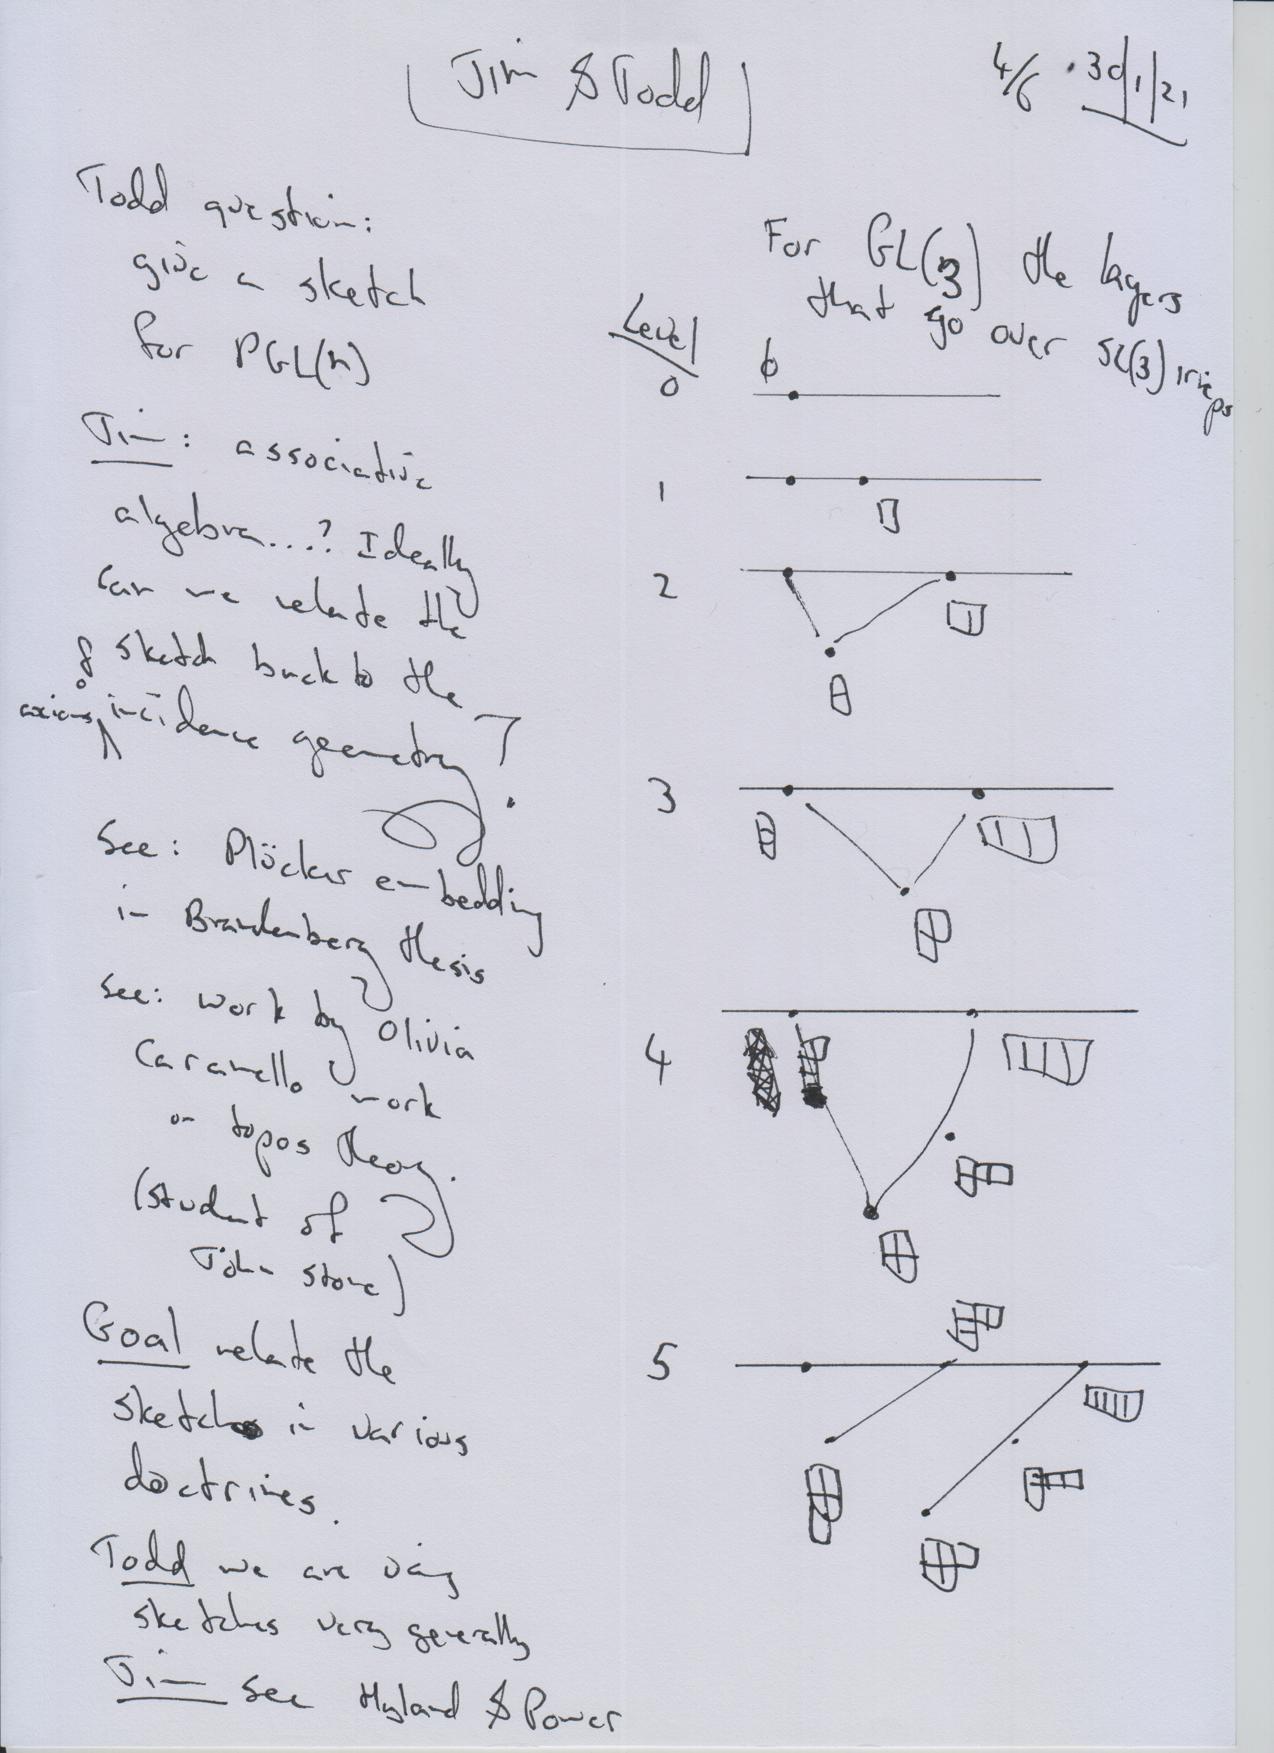 Jim & Todd
4/6 30/1/21
Todd question:
give a sketch
for PGL(n)
Jim: associative
algebra...? Ideally
can we relate the
sketch back to the
axioms of incidence geometry?
See: Plücker embedding
in Brandenberg thesis
See: work by Olivia
Caramello work
on topos theory.
(student of
John stone)
Goal relate the
sketches in various
doctrines.
Todd we are using
sketches very generally
Jim see Hyland & Power
For GL(3) the layers
that go over SL(3) irreps
Level
0 ϕ
1
2
3
4
5